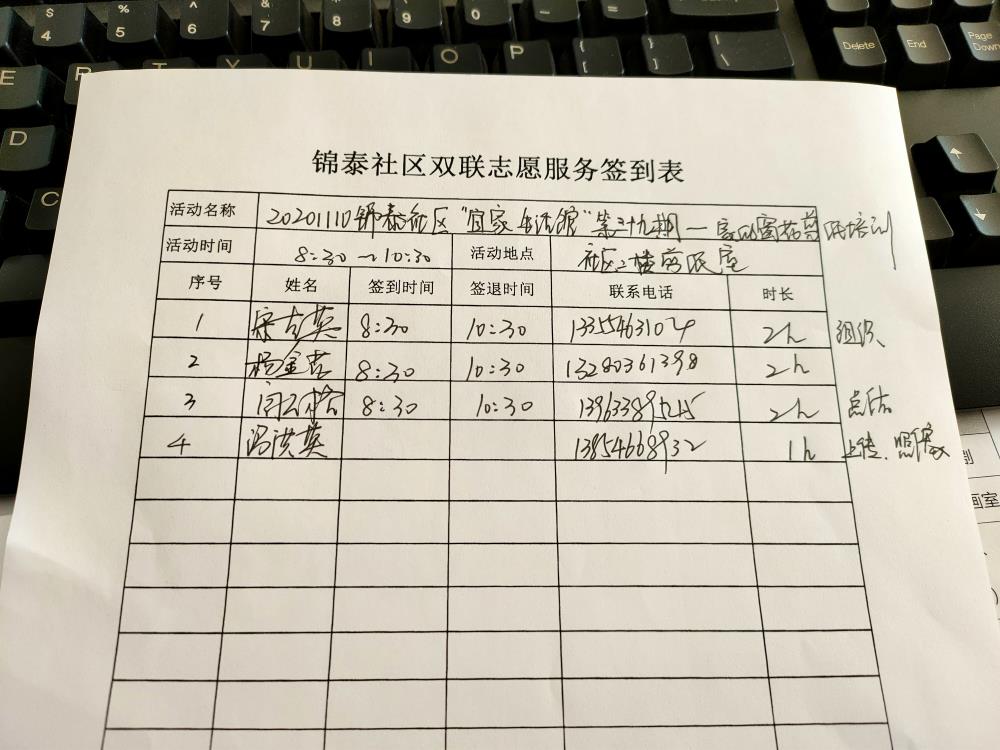 锦泰社区双联志愿服务签到表
活动名称 20201110锦泰社区"宜家生活馆"第三十九期一
培训
活动时间 8:30~10:30 活动地点 社区二楼居民室
序号 姓名 签到时间 签退时间 联系电话 时长
1 宋吉英 8:30 10:30 13355463104 2h 组织
2 杨金吉 8:30 10:30 13280361398 2h
3 8:30 10:30 2h 点估
4 冯洪英 13854668932 1h 上传.照像
画室
$ 4
% 5
^ 6
& 7
* 8
( 9
) 0
E R T Y U I O P
{ [
} ]
| \
Delete End Page Down
D
C